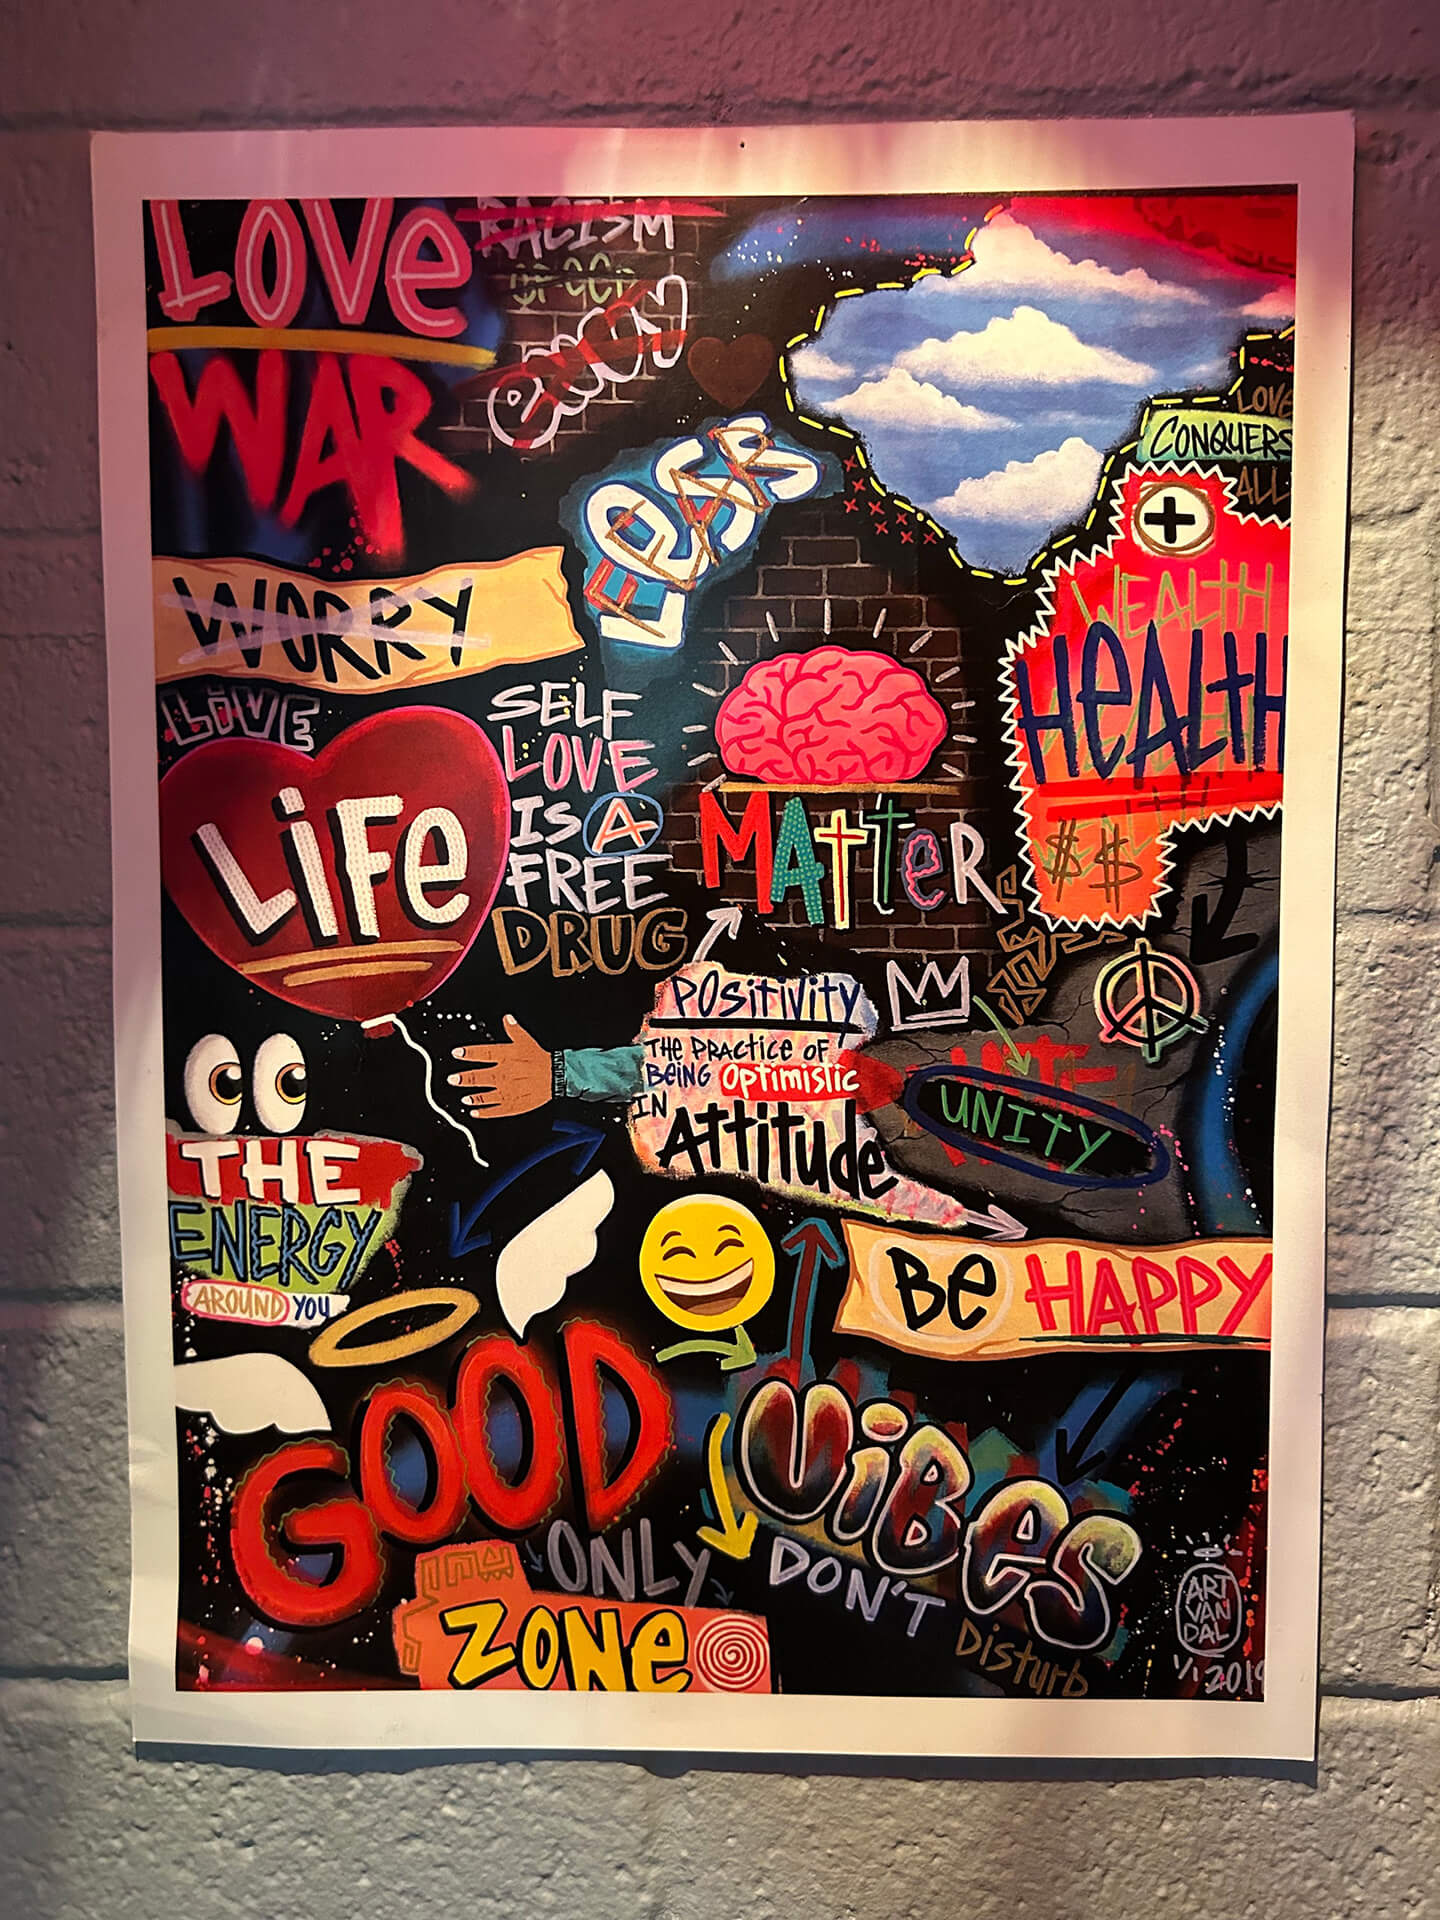 LOVe
WAR
RACISM
FEAR
LOVE
CONQUERS
ALL
WORRY
WEALTH
HEALTH
$ $
LIVE
LiFe
SELF
LOVE
IS A
FREE
DRUG
MATTeR
POSitiVity
THE PRACTICE OF
BEING OPtimistic
IN
Attitude
UNITY
THE
ENERGY
AROUND YOU
Be HAPPY
GOOD
ViBes
ONLY
ZONe
DON'T
Disturb
ART
VAN
DAL
1/1 2019